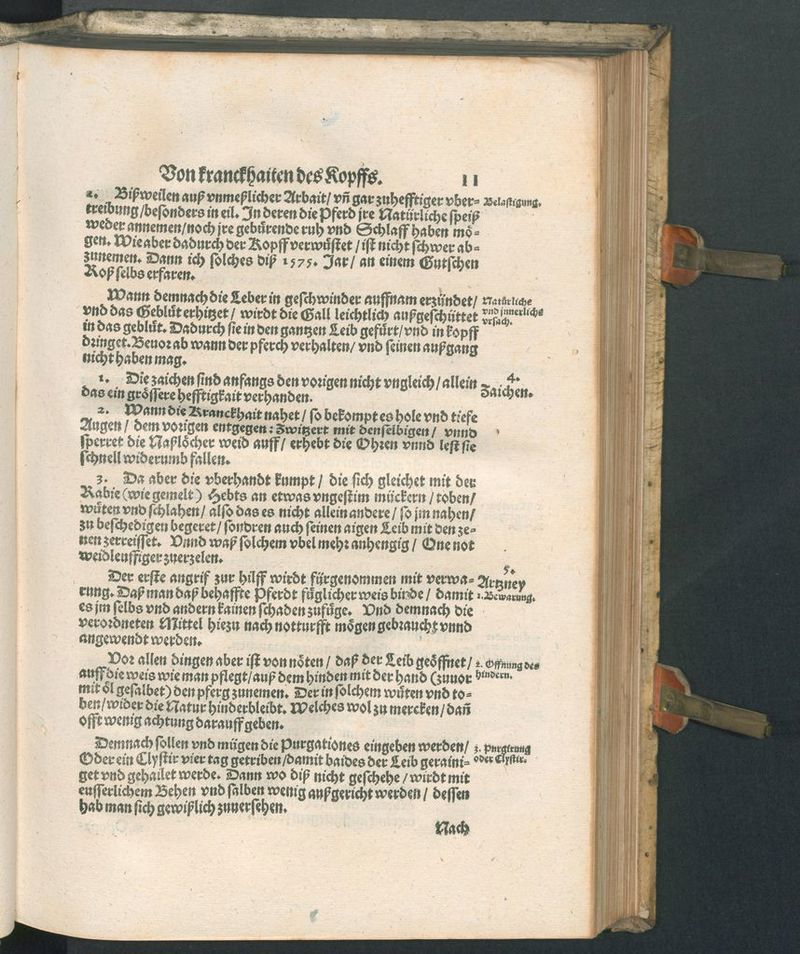 Von kranckhaiten des Kopffs. 11
2. Bißweilen auß vnmeßlicher Arbait/ vñ gar zuhefftiger vber-
Belastigung.
treibung/besonders in eil. In deren die Pferd jre Natürliche speiß
weder annemen/noch jre gebürende ruh vnd Schlaff haben mö-
gen. Wie aber dadurch der Kopff verwüstet/ ist nicht schwer ab-
zunemen. Dann ich solches diß 1575. Jar/ an einem Gutschen
Roß selbs erfaren.
Wann demnach die Leber in geschwinder auffnam erzündet/
Natürliche
vnd das Geblüt erhitzet/ wirdt die Gall leichtlich außgeschüttet
vnd jnnerliche
in das geblüt. Dadurch sie in den gantzen Leib gefürt/vnd in kopff
vrsach.
dringet. Beuor ab wann der pferch verhalten/ vnd seinen außgang
nicht haben mag.
1. Die zaichen sind anfangs den vorigen nicht vngleich/ allein
4.
das ein grössere hefftigkait verhanden.
Zaichen.
2. Wann die Kranckhait nahet/ so bekompt es hole vnd tiefe
Augen/ dem vorigen entgegen: Zwitzert mit denselbigen/ vnnd
sperret die Naßlöcher weid auff/ erhebt die Ohren vnnd lest sie
schnell widerumb fallen.
3. Da aber die vberhandt kumpt/ die sich gleichet mit der
Rabie (wie gemelt) Hebts an etwas vngestim mückern/ toben/
wüten vnd schlahen/ also das es nicht allein andere/ so jm nahen/
zu beschedigen begeret/ sondren auch seinen aigen Leib mit den ze-
nen zerreisset. Vnnd waß solchem vbel mehr anhengig/ One not
weidleuffiger zuerzelen.
Der erste angrif zur hilff wirdt fürgenommen mit verwa-
5.
Artzney
rung. Daß man daß behaffte Pferdt füglicher weis binde/ damit
1. Bewarung.
es jm selbs vnd andern kainen schaden zufüge. Vnd demnach die
verordneten Mittel hiezu nach notturfft mögen gebraucht vnnd
angewendt werden.
Vor allen dingen aber ist von nöten/ daß der Leib geöffnet/
2. Offnung des
auff die weis wie man pflegt/auß dem hinden mit der hand (zuuor
hindern.
mit öl gesalbet) den pferg zunemen. Der in solchem wüten vnd to-
ben/wider die Natur hinderbleibt. Welches wol zu mercken/dañ
offt wenig achtung darauff geben.
Demnach sollen vnd mügen die Purgationes eingeben werden/
3. Purgirung
Oder ein Clystir vier tag getriben/damit baides der Leib geraini-
oder Clystir.
get vnd gehailet werde. Dann wo diß nicht geschehe/ wirdt mit
eusserlichem Behen vnd salben wenig außgericht werden/ dessen
hab man sich gewißlich zuuersehen.
Nach